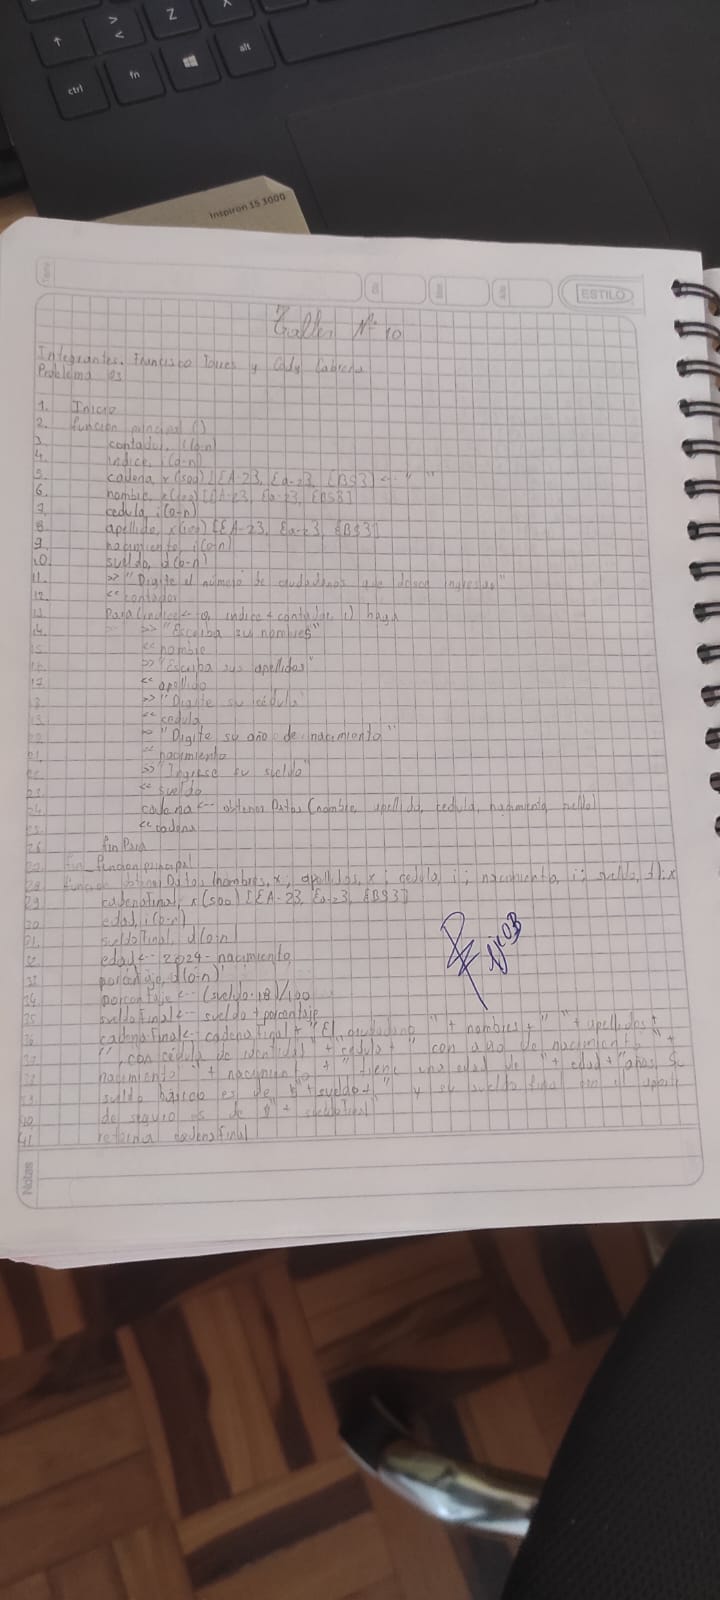 Z
>
<
ctrl
fn
alt
Inspiron 15 3000
ESTILO
Taller N° 10
Integrantes. Francisco Torres y Cabrera
Problema 03
1. Inicio
2. función principal ()
3. contador, i(0-n)
4. indice, i(0-n)
5. cadena, x(500) [{A-Z}, {a-z}, {BS}] <-- " "
6. nombre, x(100) [{A-Z}, {a-z}, {BS}]
7. cedula, i(0-n)
8. apellido, x(100) [{A-Z}, {a-z}, {BS}]
9. nacimiento, i(0-n)
10. sueldo, d(0-n)
11. >> "Digite el número de ciudadanos que desea ingresar"
12. << contador
13. Para (indice <-- 0, indice < contador, 1) haga
14. >> "Escriba su nombres"
15. << nombre
16. >> "Escriba sus apellidos"
17. << apellido
18. >> "Digite su cédula"
19. << cedula
20. >> "Digite su año de nacimiento"
21. << nacimiento
22. >> "Ingrese su sueldo"
23. << sueldo
24. cadena <-- obtener Datos (nombre, apellido, cedula, nacimiento, sueldo)
25. << cadena
26. fin Para
27. fin_funcion principal
28. función obtener Datos (nombres, x; apellidos, x; cedula, i; nacimiento, i; sueldo, d): x
29. cadenaFinal, x(500) [{A-Z}, {a-z}, {BS}]
30. edad, i(0-n)
31. sueldoFinal, d(0-n)
32. edad <-- 2024 - nacimiento
33. porcentaje, d(0-n)
34. porcentaje <-- (sueldo·18)/100
35. sueldoFinal <-- sueldo + porcentaje
36. cadenaFinal <-- cadenaFinal + "El ciudadano " + nombres + " " + apellidos +
37. ", con cédula de identidad " + cedula + " con año de nacimiento " +
38. nacimiento + " tiene una edad de " + edad + "años. Su
39. sueldo básico es de $" + sueldo + " y su sueldo final con el aporte
40. de seguro es de $" + sueldoFinal
41. retorna cadenaFinal
Notas